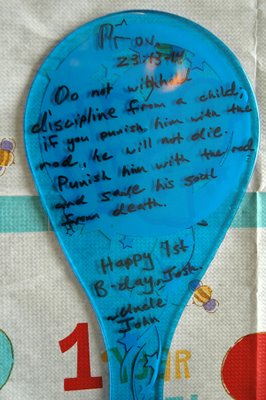 Prov.
23:13-14
Do not withhold
discipline from a child;
if you punish him with the
rod, he will not die.
Punish him with the rod
and save his soul
from death.
Happy 1st
B-day, Josh.
~Uncle
John
1
YEAR